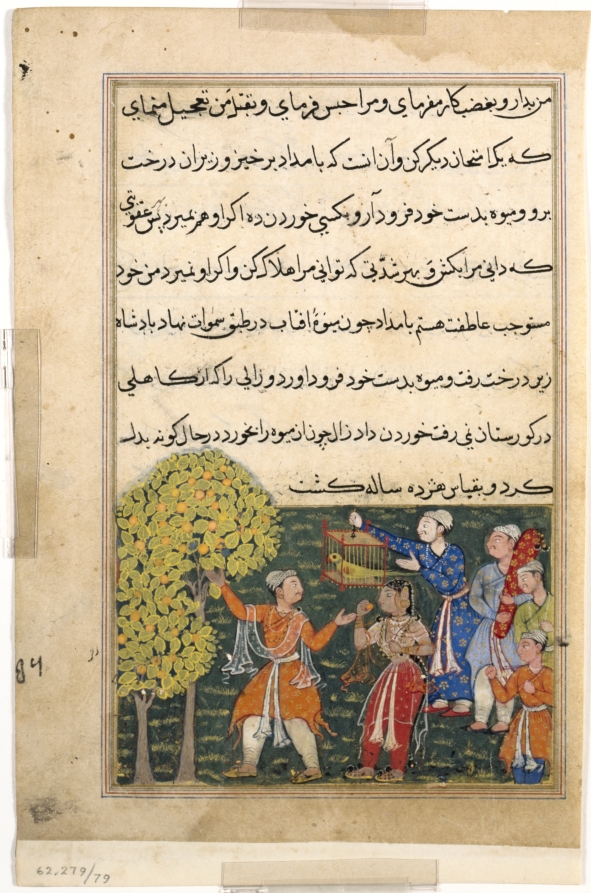 من بدار و بغضب کار مفرمای و مرا حبس فرمای و تعجیل منمای
که یک امتحان دیگر کن و آن انست که بامداد برخیز و زیر ان درخت
برو و میوه بدست خود فرود آر و بکسی خوردن ده اکر او هم نمیرد پس عقوبتی
که دانی مرا بکش و بهر شدّتی که توانی مرا هلاک کن و اکر او نمیرد من خود
مستوجب عاطفت هستم بامداد چون میوهٔ افتاب در طبق سموات نهاد بادشاه
زیر درخت رفت و میوه بدست خود فرود اورد و زالی را که از کاهلی
در کورستان نمی رفت خوردن داد زال چون از میوه را بخورد در حال کونه بدل
کرد و بقیاس هژده ساله کشت
62.279/79